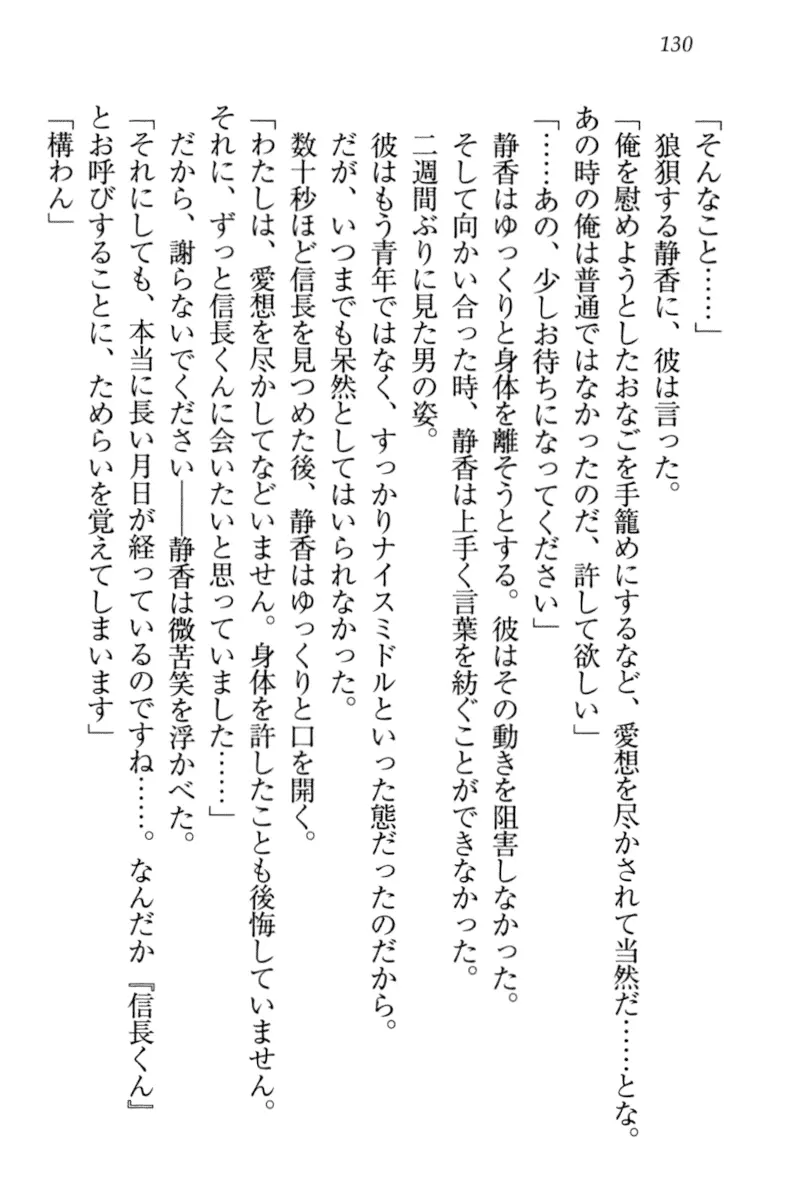 130
「そんなこと……」
狼狽する静香に、彼は言った。
「俺を慰めようとしたおなごを手籠めにするなど、愛想を尽かされて当然だ……とな。
あの時の俺は普通ではなかったのだ、許して欲しい」
「……あの、少しお待ちになってください」
静香はゆっくりと身体を離そうとする。彼はその動きを阻害しなかった。
そして向かい合った時、静香は上手く言葉を紡ぐことができなかった。
二週間ぶりに見た男の姿。
彼はもう青年ではなく、すっかりナイスミドルといった態だったのだから。
だが、いつまでも呆然としてはいられなかった。
数十秒ほど信長を見つめた後、静香はゆっくりと口を開く。
「わたしは、愛想を尽かしてなどいません。身体を許したことも後悔していません。
それに、ずっと信長くんに会いたいと思っていました……」
だから、謝らないでください――静香は微苦笑を浮かべた。
「それにしても、本当に長い月日が経っているのですね……。なんだか『信長くん』
とお呼びすることに、ためらいを覚えてしまいます」
「構わん」